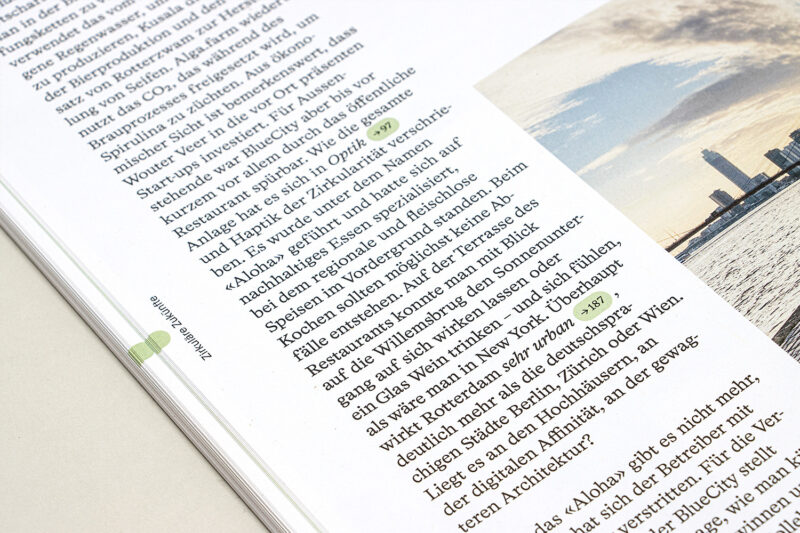 an in der
fungsketten zu
verwendet das vom
gene Regenwasser, um
zu produzieren, Kusala
der Bierproduktion und den
satz von Rotterzwam zur Herst
lung von Seifen, Alga.farm wieder
nutzt das CO₂, das während des
Brauprozesses freigesetzt wird, um
Spirulina zu züchten. Aus ökono-
mischer Sicht ist bemerkenswert, dass
Wouter Veer in die vor Ort präsenten
Start-ups investiert. Für Aussen-
stehende war BlueCity aber bis vor
kurzem vor allem durch das öffentliche
Restaurant spürbar. Wie die gesamte
Anlage hat es sich in Optik →97
und Haptik der Zirkularität verschrie-
ben. Es wurde unter dem Namen
«Aloha» geführt und hatte sich auf
nachhaltiges Essen spezialisiert,
bei dem regionale und fleischlose
Speisen im Vordergrund standen. Beim
Kochen sollten möglichst keine Ab-
fälle entstehen. Auf der Terrasse des
Restaurants konnte man mit Blick
auf die Willemsbrug den Sonnenunter-
gang auf sich wirken lassen oder
ein Glas Wein trinken – und sich fühlen,
als wäre man in New York. Überhaupt
wirkt Rotterdam sehr urban →187 ,
deutlich mehr als die deutschspra-
chigen Städte Berlin, Zürich oder Wien.
Liegt es an den Hochhäusern, an
der digitalen Affinität, an der gewag-
teren Architektur?
das «Aloha» gibt es nicht mehr,
hat sich der Betreiber mit
verstritten. Für die Ver-
der BlueCity stellt
age, wie man k
winnen u
Zirkuläre Zukünfte